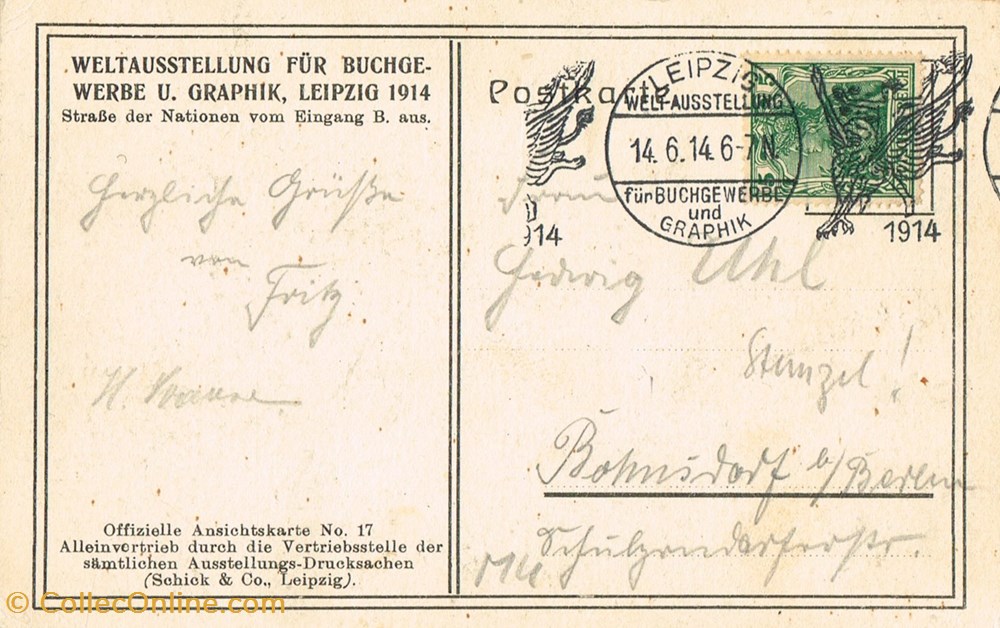 WELTAUSSTELLUNG FÜR BUCHGE-
WERBE U. GRAPHIK, LEIPZIG 1914
Straße der Nationen vom Eingang B. aus.
Herzliche Grüße
von
Fritz
H.
Offizielle Ansichtskarte No. 17
Alleinvertrieb durch die Vertriebsstelle der
sämtlichen Ausstellungs-Drucksachen
(Schick & Co., Leipzig).
Postkarte
LEIPZIG
WELT-AUSSTELLUNG
14.6.14.6-7N.
für BUCHGEWERBE
und
GRAPHIK
1914
1914
Frau
Hedwig Uhl
Stempel!
Bohnsdorf b/Berlin
© CollecOnline.com